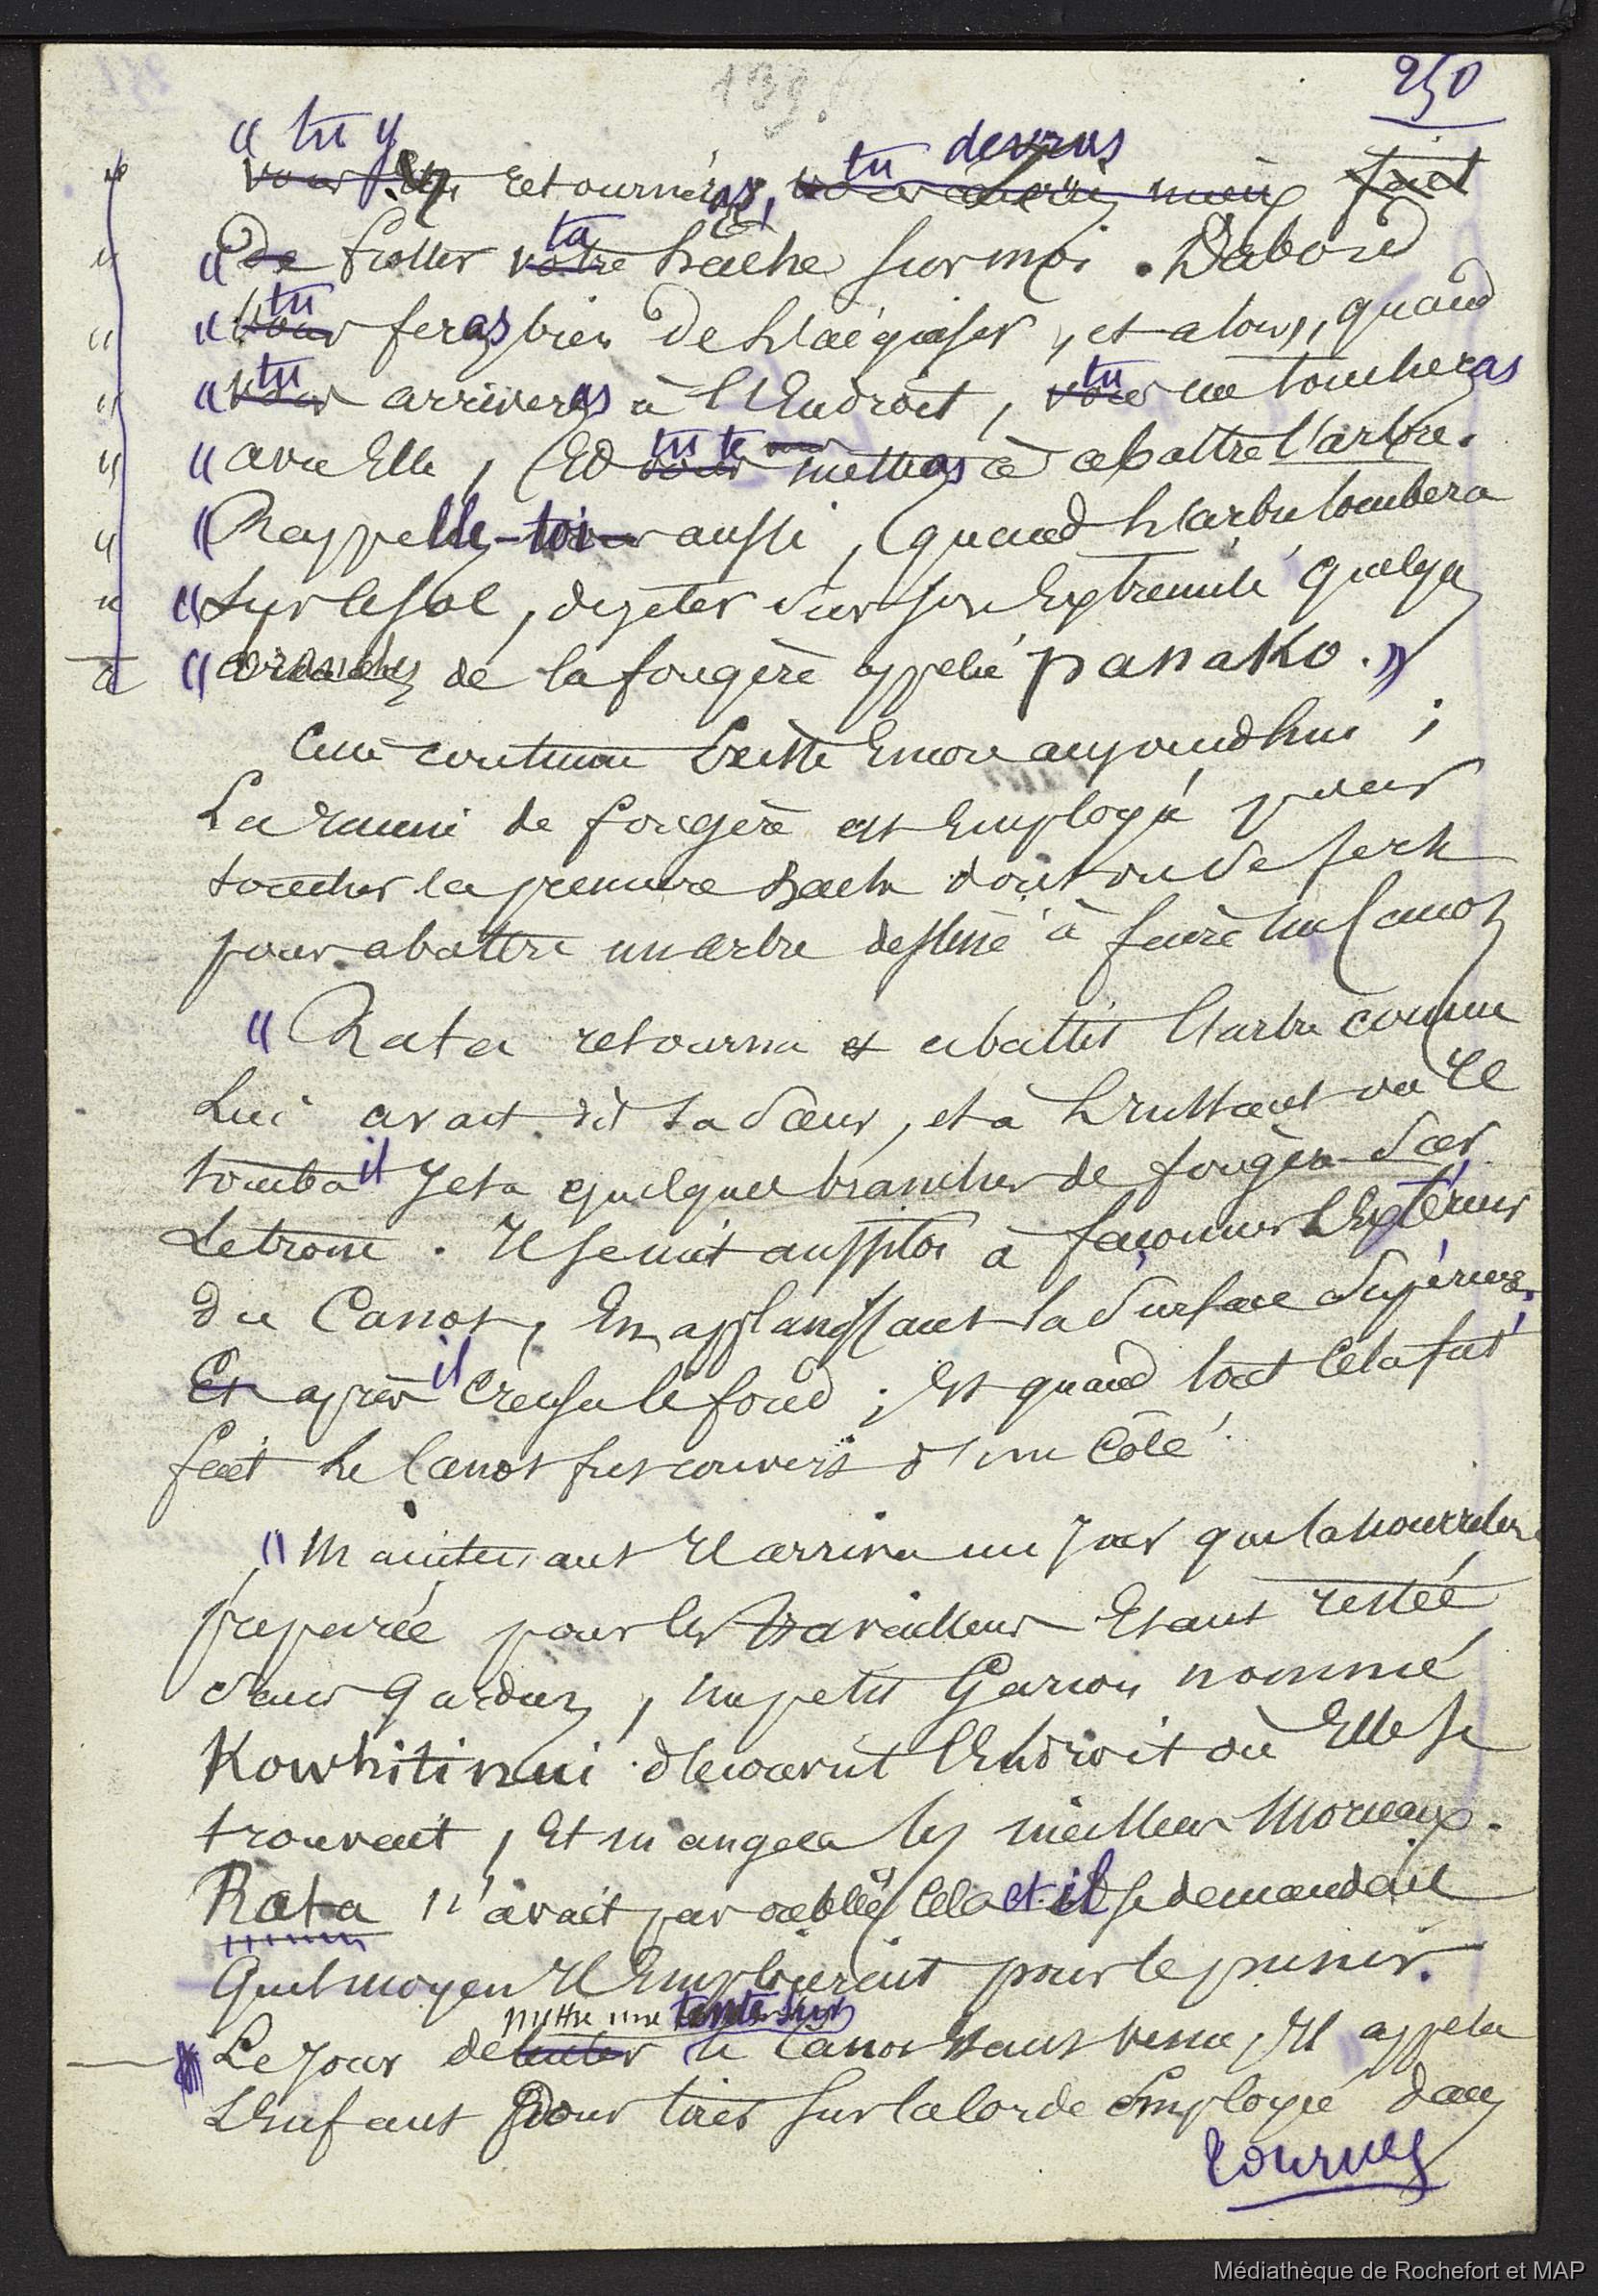 139
250
« tu y tu devras
vous y retourneras, vous aurez mieux fait
« de frotter votre ta hache sur moi. D'abord
« vous tu feras bien de l'aéguiser, et alors, quand
« vous tu arriveras à l'Endroit, vous tu me toucheras
« avec Elle, Et vous tu te mettras à abattre l'arbre.
« Rappelle-toi aussi, quand l'arbre tombera
« sur le sol, de jeter sur son Extremité quelques
« branches de la fougère appelée panako. »
Cette coutume Existe Encore aujourd'hui ;
La ramie de fougère est Employée pour
toucher la première hache dont on se sert
pour abattre un arbre destiné à faire un Canot
« Rata retourna et abattit l'arbre comme
Lui avait dit sa Sœur, et à l'instant où Il
tomba il Jeta quelques branches de fougère sur
Le tronc. Il se mit aussitôt à façonner l'Extérieur
du Canot, En applanissant la Surface Supérieure,
Et après il creusa le fond ; Et quand tout Cela fut
fait le Canot fut couvert d'un Côté.
« Maintenant Il arriva un Jour que la nourriture
preparée pour les travailleurs Etant restée
sans gardien, un petit Garçon nommé
Kowhitinui découvrit l'Endroit où Elle se
trouvait, Et mangea les meilleurs Morceaux.
Rata n'avait pas oublié Cela et il se demandait
Quel moyen Il Emploierait pour le punir.
mettre une tente sur
« Le Jour de tenter le Canot Etant venu, Il appela
L'Enfant pour tirer sur la Corde Employée dans
tournez
Médiathèque de Rochefort et MAP